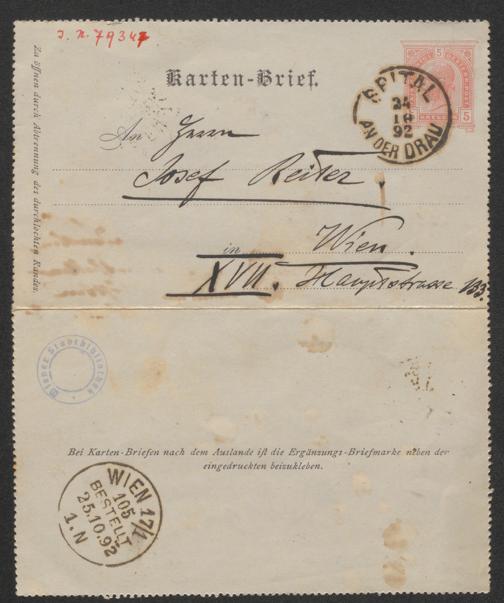 I. N. 79347
Karten-Brief.
5
5
SPITAL
24
10
92
AN DER DRAU
An Herrn
Josef Reiter.
in Wien.
XVII. Hauptstrasse 133.
Zu öffnen durch Abtrennung des durchlochten Randes.
Wiener Stadtbibliothek
Bei Karten-Briefen nach dem Auslande ist die Ergänzungs-Briefmarke neben der
eingedruckten beizukleben.
WIEN 17/1
105
BESTELLT
25.10.92
1.N